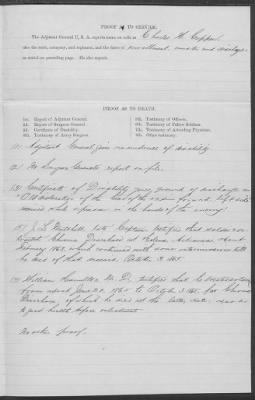 PROOF AS TO SERVICE.
The Adjutant General U. S. A. reports name on rolls as Charles H.
also the rank, company, and regiment, and the dates of enrollment, muster and discharge
as stated on preceding page. He also reports
PROOF AS TO DEATH.
(1). Report of Adjutant General.
(2). Report of Surgeon General.
(3). Certificate of Disability.
(4). Testimony of Army Surgeon.
(5). Testimony of Officers.
(6). Testimony of Fellow Soldiers.
(7). Testimony of Attending Physician.
(8). Other testimony.
(1) Adjutant General gives no evidence of disability
(2) No Surgeon General's report on file.
(3) Certificate of Disability gives ground of discharge as
of the
while a prisoner in the hands of the enemy.
(5) J. L. Mitchell late Captain testifies that soldier con-
tracted Chronic Diarrhoea at Helena, Arkansas about
which continued with some intermissions until
he died of that disease, October 3, 1865.
(7) William Hamilton M. D. testifies that he attended
from about June 20, 1865 to October 3, 1865, for Chronic
Diarrhoea, of which he died at the latter date. was in
good health before enlistment
No other proof.